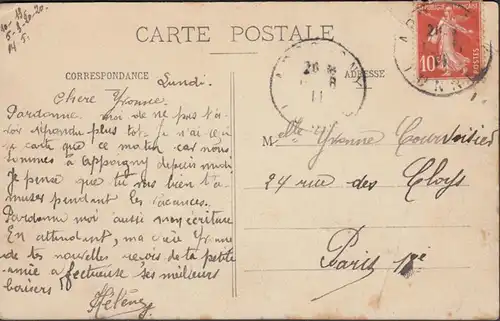 CARTE POSTALE
CORRESPONDANCE
ADRESSE
Lundi.
Chere Yvonne
Pardonne moi de ne pas t'a-
voir répondu plus tôt je n'ai
ta carte que ce matin car nous
sommes à appoigny depuis
Je pense que tu vas bien t'a-
muser pendant les vacances.
Pardonne moi aussi mon écriture
En attendant, ma chère Yvonne
de tes nouvelles reçois de ta petite
amie affectueuse ses meilleurs
baisers
Hélène
Melle Yvonne Courvoisier
24 rue des Cloys
Paris
REPUBLIQUE FRANÇAISE
10
POSTES